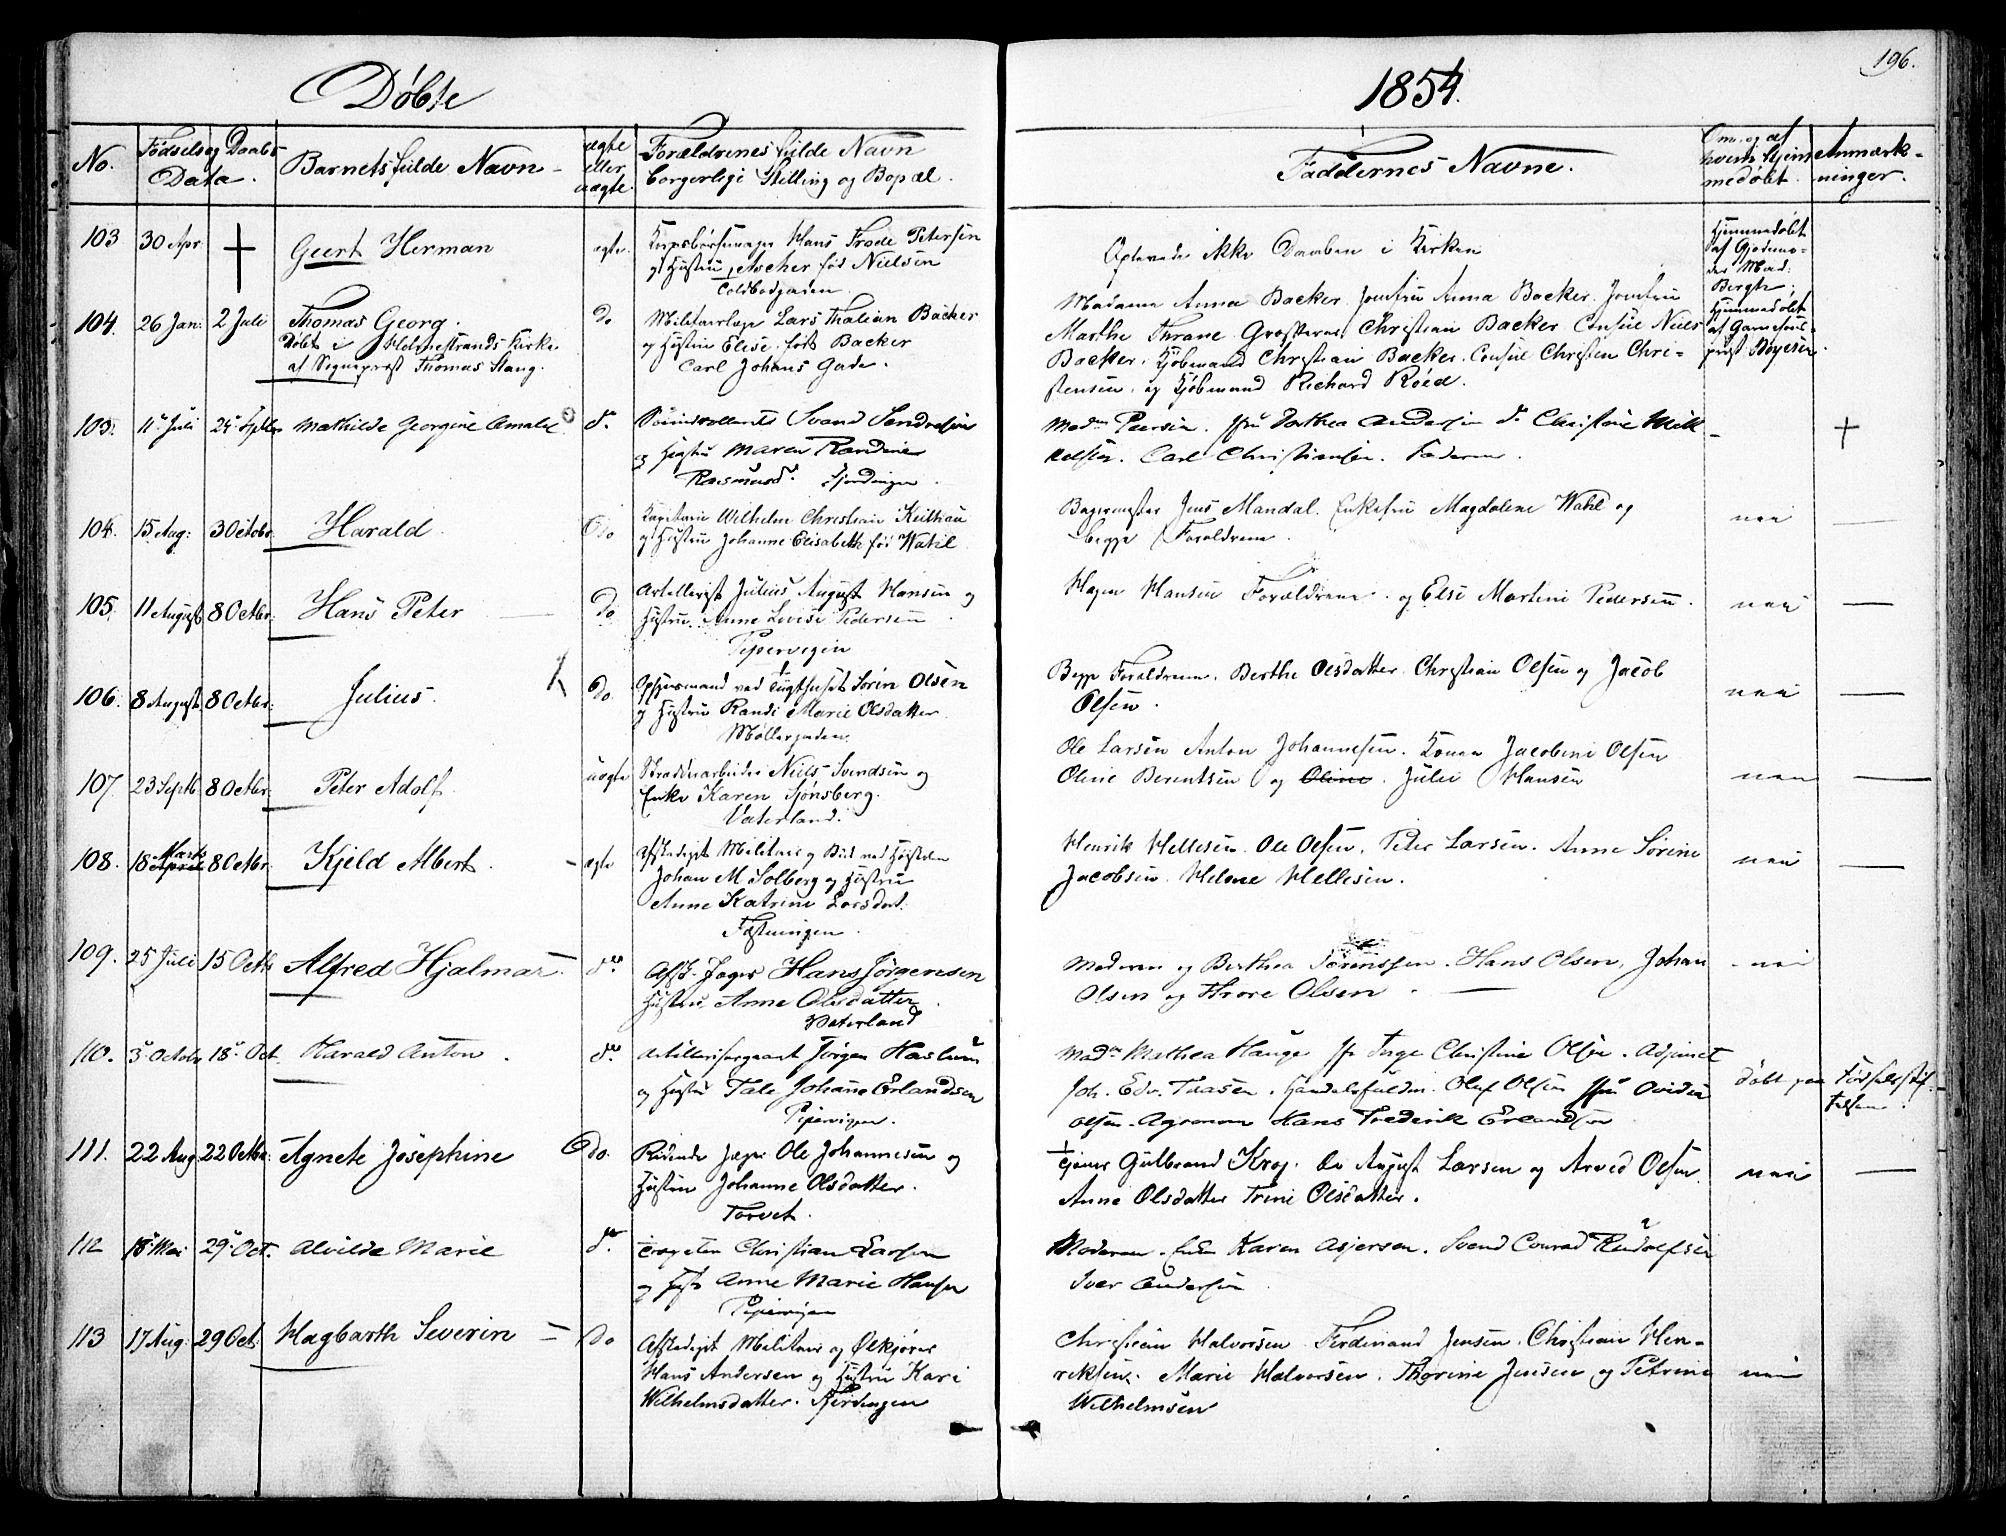 196.
Døbte
1854.
No.
Fødsels og Daabs
Data.
Barnets fulde Navn
ægte
eller
uægte.
Forældrenes fulde Navn
borgerlige Stilling og Bopæl.
Faddernes Navne.
Om og af
hvem hjem
medøbt.
Anmærk-
ninger.
103 30 Apr Geert Herman ægte. Hans Frode Petersen
og Hustru Ascher fød Nielsen
Toldbodgaden.
Oplevede ikke Daaben i Kirken
hjemmedøbt
af Gjordemo-
der Mad:
Bergh.
104. 26 Jan: 2 Juli Thomas Georg. Do Militairlæge Lars Thalian Backer
Døbt i Holmestrands Kirke og Hustru Elise født Backer
af Sognepræst Thomas Stang. Carl Johans Gade.
Madame Anna Backer. Jomfru Anna Backer. Jomfru
Marthe Thrane. Christian Backer Consul Niels
Backer. Kjøbmand Christian Backer. Consul Christen Chri-
stensen. og Kjøbmand Richard Röed.
hjemmedøbt
af Garnisons-
præst Boyesen.
103. 11 Juli 24 Septbr Mathilde Georgine Amalie do. Svend
og Hustru Maren Randine
Rasmusd.
Madm . Dorthea Andersen do Christine Mik-
kelsen. Carl Christiansen. Faderen.
104. 15 Aug: 3 October Harald. Do Wilhelm Christian
og Hustru Johanne Elisabeth fød Wahl
Bagermester Jens Mandal. Enkefru Magdalene Wahl og
begge Forældrene.
nei
105. 11 August 8 Octbr: Hans Peter Do Artillerist Julius August Hansen og
Hustru. Anne Lovise Pedersen
Pipervigen
Hagen Hansen Forældrene. og Else Martine Pedersen.
nei
106. 8 August. 8 Octbr: Julius. Do. Opsynsmand ved Tugthuset Sørin Olsen
og Hustru Randi Marie Olsdatter.
Møllergaden.
Begge Forældrene. Berthe Olsdatter. Christian Olsen og Jacob
Olsen.
nei
107. 23 Septb 8 Octbr. Peter Adolf. uægte Niels Svendsen og
Enke Karen Sjönsberg.
Vaterland.
Ole Larsen Anton Johannesen. Kone Jacobine Olsen
Oline Berentsen og Oline. Julie Hansen
nei
108. 18 Marts April 8 Octbr. Kjeld Albert. ægte Afskediget Militair og Bud ved
Johan M Solberg og Hustru
Anne Katrine Larsdat.
Fæstningen.
Henrik Hellesen. Ole Olsen. Peter Larsen. Anne Sörine
Jacobsen. Helene Hellesen.
nei
109. 25 Juli 15 Octb Alfred Hjalmar. do. Afsk. Jæger Hans Jörgensen
Hustru Anne Olsdatter.
Vaterland
Moderen og Berthea Sörenssen. Hans Olsen, Johan
Olsen og Thore Olsen.
nei
110. 3 Octob 18 Oct Harald Anton. do. Artillerisergeant Jörgen Haslum
og Hustru Tale Johanne Erlandsen
Pipervigen.
Madm Mathea Hauge Christine Olsen. Adjunct
Joh. Edv. Thasen. Handelsfuldm. Oluf Olsen
Olsen. Agronom Hans Frederik Erlandsen
døbt paa Fødselsstif-
telsen.
111. 22 Aug 22 Octbr. Agnete Josephine Do. Ridende Jæger Ole Johannesen og
Hustru Johanne Olsdatter.
Torvet.
Gulbrand Krog. August Larsen og Arved Olsen.
Anne Olsdatter Trine Olsdatter.
nei
112 18 Mai 29 Oct. Alvilde Marie do. Christian Larsen
og Anne Marie Hansen
Pipervigen
Moderen. Karen Asjersen. Svend Conrad Rudolfsen
Iver Andersen
113 17 Aug: 29 Oct. Hagbarth Severin Do Afskediget Militair og Ølkjører
Hans Andersen og Hustru Kari
Wilhelmsdatter. Fjerdingen
Christian Halvorsen Ferdinand Jensen. Christian Hen-
riksen. Marie Halvorsen. Thorine Jensen og Petrine
Wilhelmsen
nei